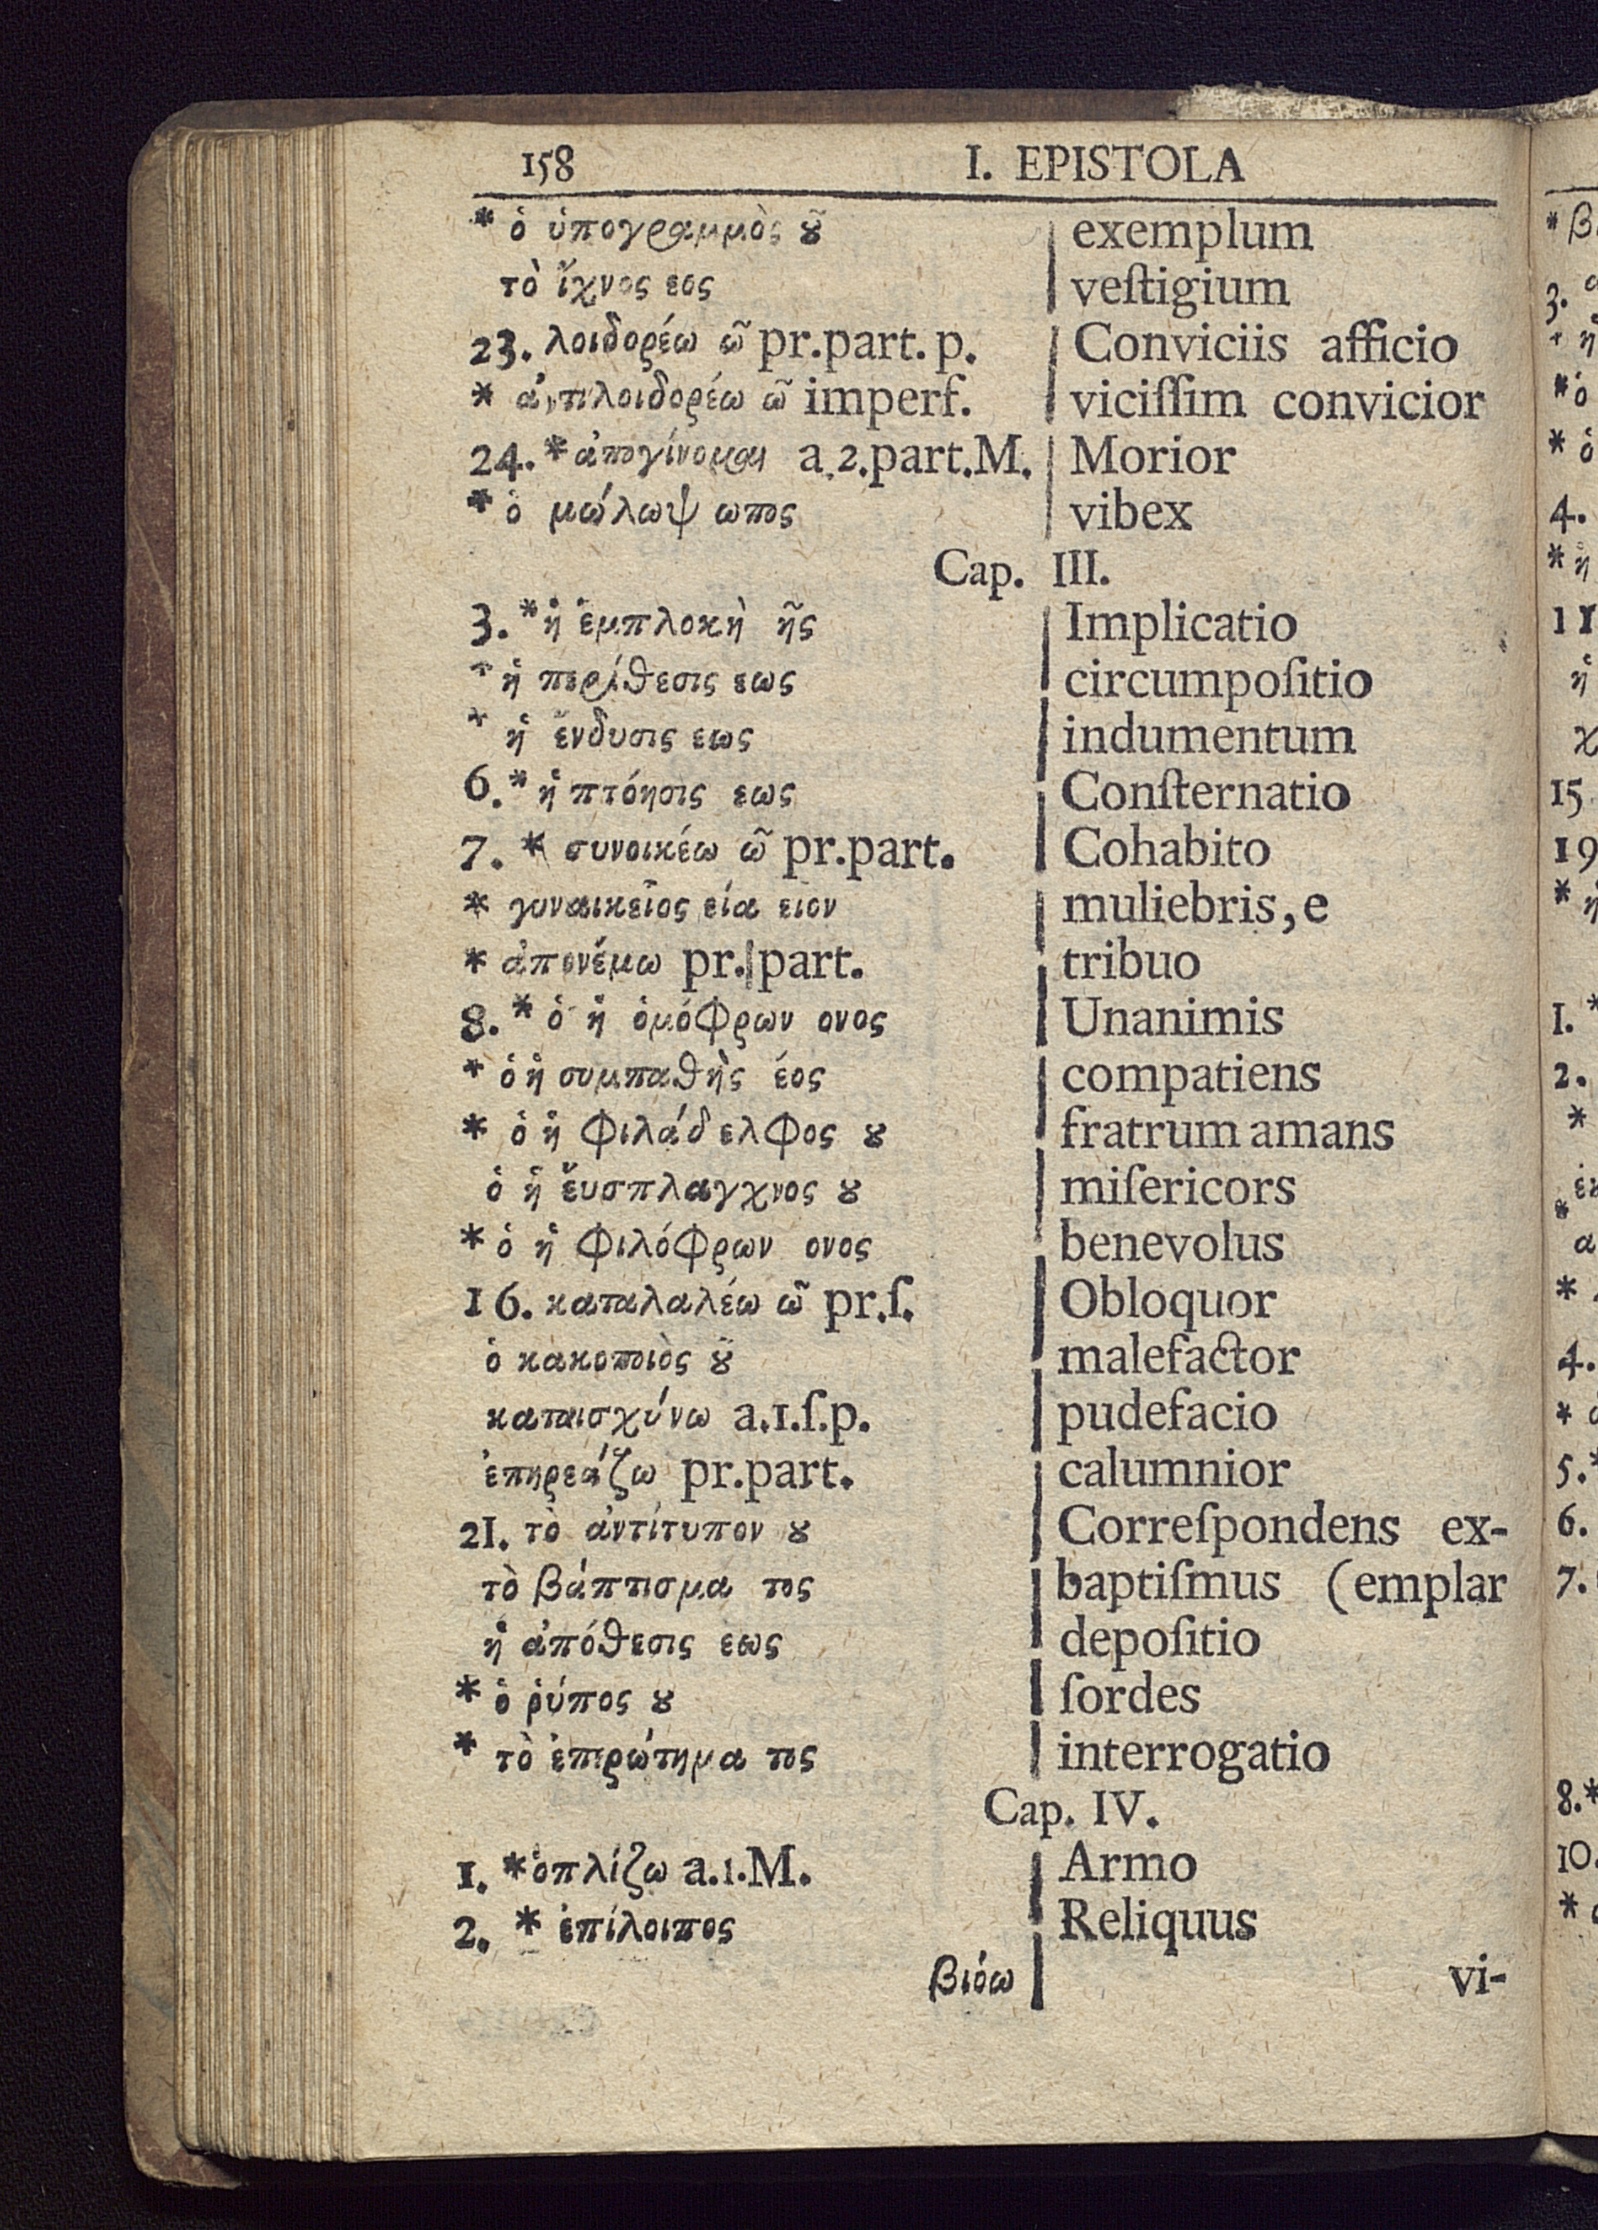 158 I. EPISTOLA
* ὁ ὑπογραμμὸς ȣ͂ exemplum
τὸ ἴχνος εος veſtigium
23. λοιδορέω ῶ pr.part. p. Conviciis afficio
* ἀντιλοιδορέω ῶ imperf. viciſſim convicior
24. * ἀπογίνομαι a.2.part.M. Morior
* ὁ μώλωψ ωπος vibex
Cap. III.
3. * ἡ ἐμπλοκὴ ῆς Implicatio
* ἡ περίθεσις εως circumpoſitio
* ἡ ἔνδυσις εως indumentum
6. * ἡ πτόησις εως Conſternatio
7. * συνοικέω ῶ pr.part. Cohabito
* γυναικεῖος εία ειον muliebris, e
* ἀπονέμω pr. part. tribuo
8. * ὁ ἡ ὁμόφρων ονος Unanimis
* ὁ ἡ συμπαθὴς έος compatiens
* ὁ ἡ φιλάδελφος ȣ fratrum amans
ὁ ἡ ἔυσπλαγχνος ȣ miſericors
* ὁ ἡ φιλόφρων ονος benevolus
16. καταλαλέω ῶ pr.ſ. Obloquor
ὁ κακοποιὸς ȣ͂ malefactor
καταισχύνω a.1.ſ.p. pudefacio
ἐπηρεάζω pr.part. calumnior
21. τὸ ἀντίτυπον ȣ Correſpondens ex-
τὸ βάπτισμα τος baptiſmus (emplar
ἡ ἀπόθεσις εως depoſitio
* ὁ ῥύπος ȣ ſordes
* τὸ ἐπερώτημα τος interrogatio
Cap. IV.
1. * ὁπλίζω a.1.M. Armo
2. * ἐπίλοιπος Reliquus
βιόω vi-